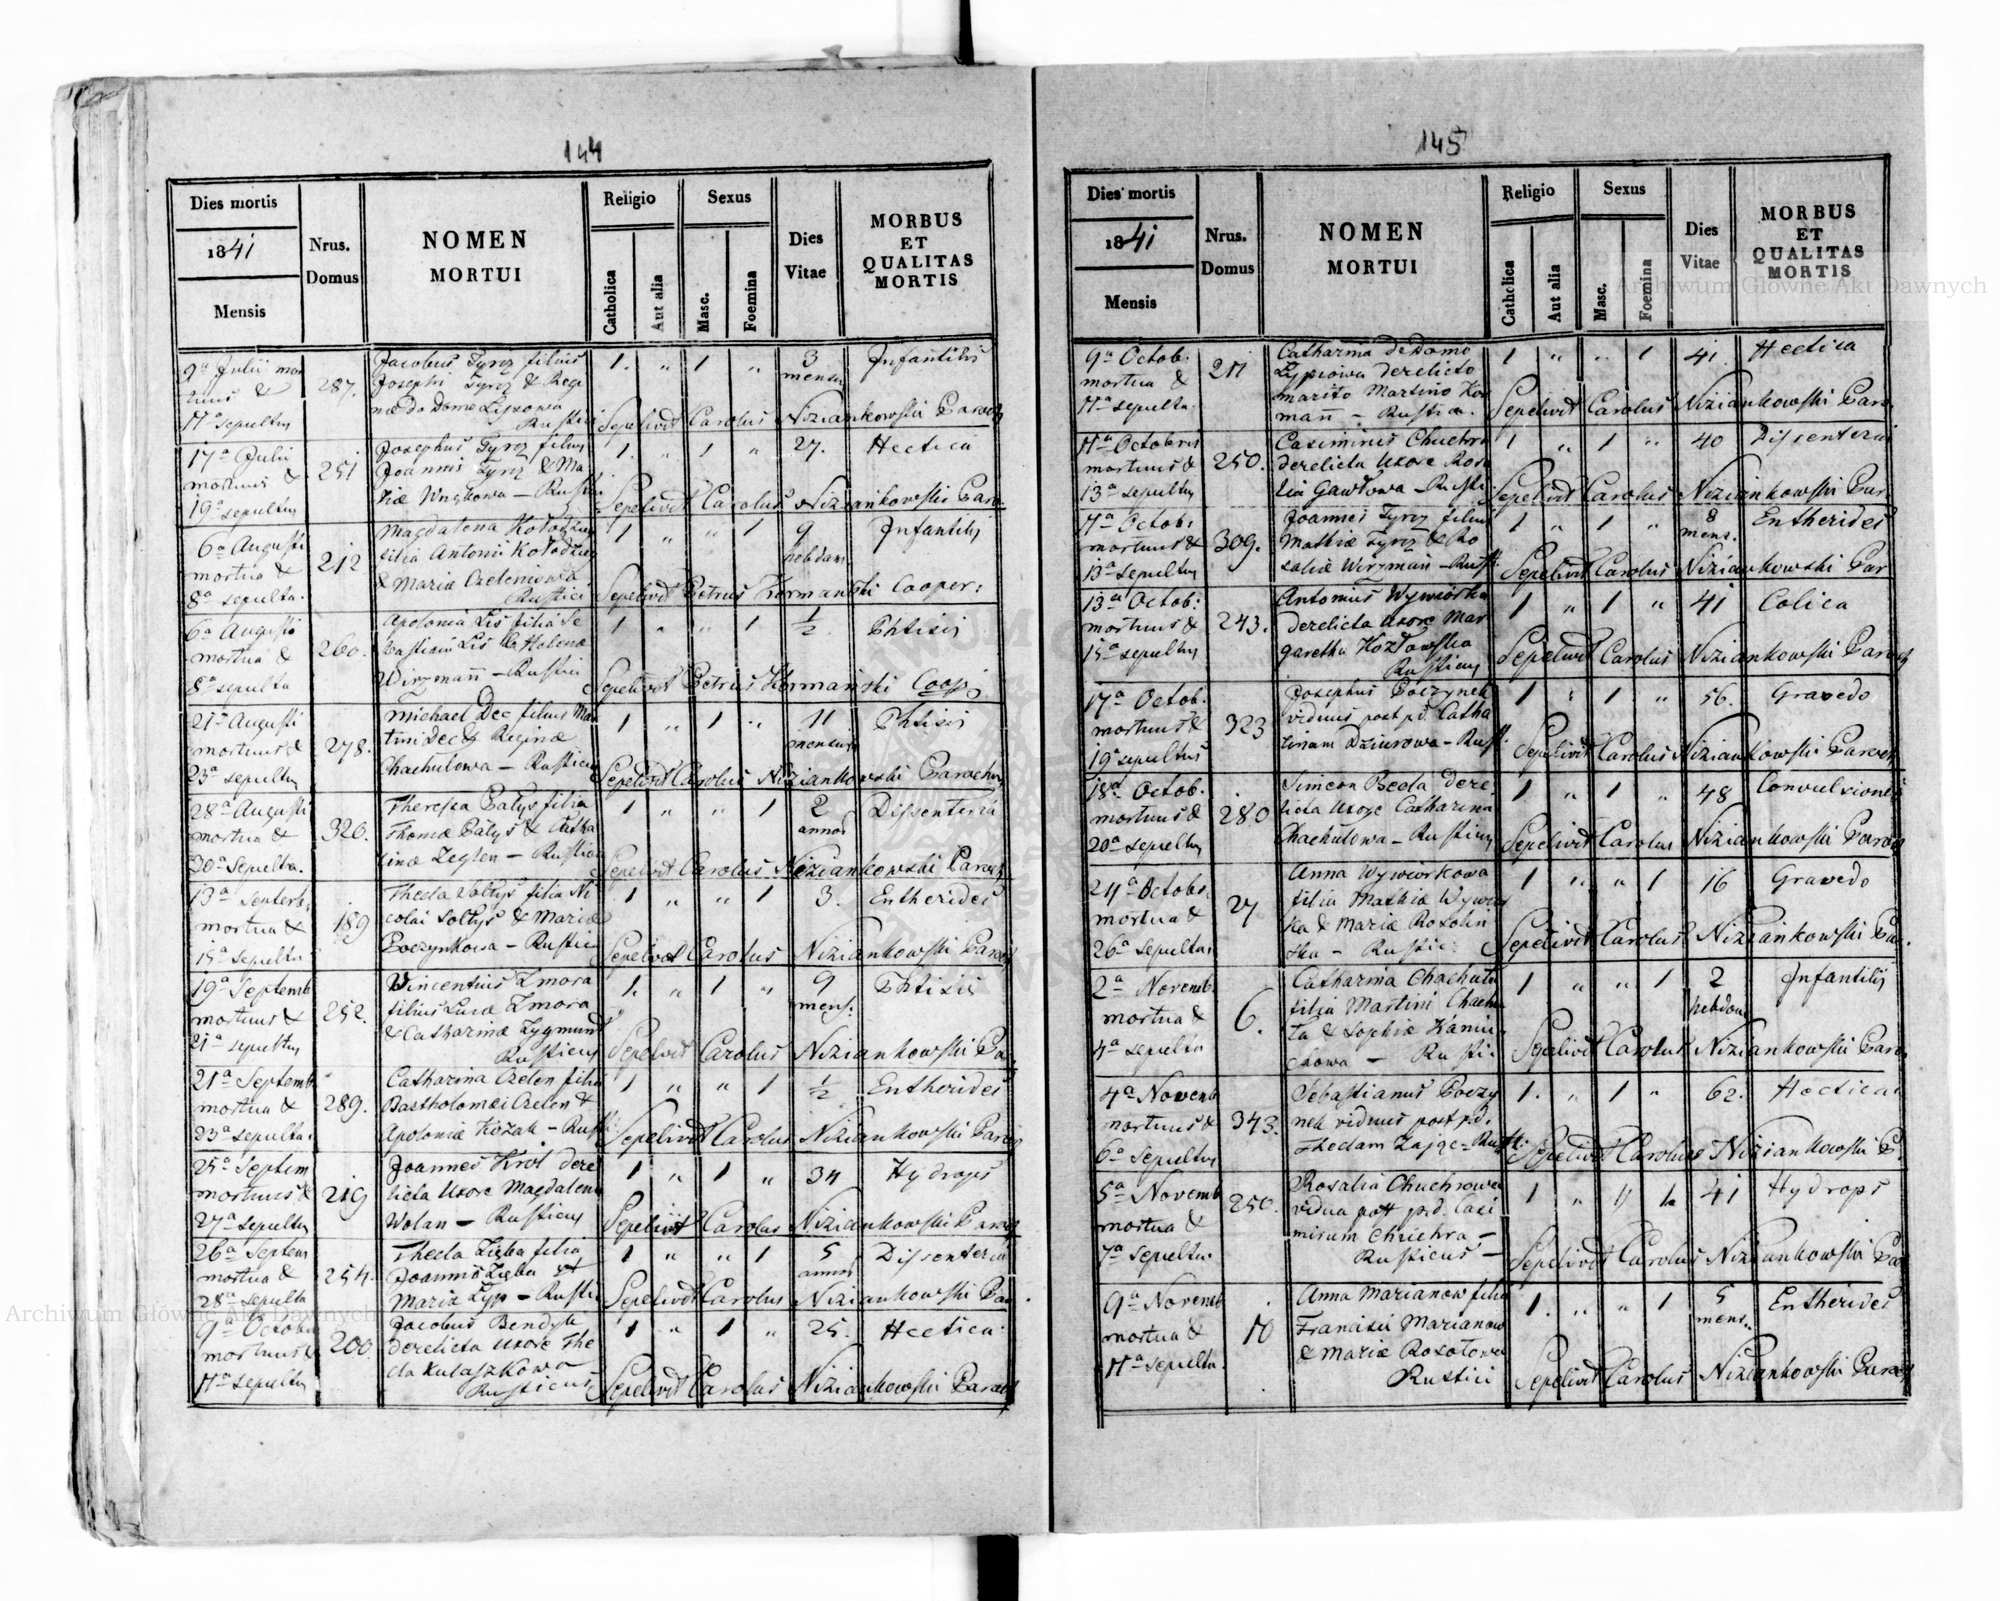 144
Dies mortis
1841
Mensis
Nrus.
Domus
NOMEN
MORTUI
Religio
Catholica
Aut alia
Sexus
Masc.
Foemina
Dies
Vitae
MORBUS
ET
QUALITAS
MORTIS
9a Julii mor
tuus &
11a sepultus
287.
Jacobus Tyrcz filius
Josephi Tyrcz & Regi
nae de Domo Lysowa
Rustici
1. " 1 "
3
mensis
Infantilis
Sepelivit Carolus Niziankowski Paroch
17a Julii
mortuus &
19a sepultus
251
Josephus Tyrcz filius
Joannis Tyrcz & Ma
riae Wnękowa – Rustici
1. " 1 "
27.
Hectica
Sepelivit Carolus Niziankowski Paro
6a Augusti
mortua &
8a sepulta.
212
Magdalena Kołodziey
filia Antonii Kołodziey
& Maria Czeleniowa
Rustici
1 " " 1
9
hebdom
Infantilis
Sepelivit Petrus Kormanski Cooper:
6a Augusti
mortua &
8a sepulta
260.
Apolonia Lis filia Se
bastiani Lis & Helenae
Wirzmann – Rustici
1 " " 1
1/2
Phtisis
Sepelivit Petrus Kormański Coop.
21a Augusti
mortuus &
23a sepultus
278.
Michael Dec filius Mar
tini Dec & Reginae
Chachułowa – Rusticus
1 " 1 "
11
mensium
Phtisis
Sepelivit Carolus Niziankowski Parochus
28a Augusti
mortua &
30a Sepulta.
326.
Theressa Pałys filia
Thomae Pałys & Catha
rinae Zeglen – Rustica
1 " " 1
2
annos
Dissenteria
Sepelivit Carolus Niziankowski Paroch
13a Septerb.
mortua &
15a sepulta
189
Thecla Sołtys filia Ni
colai Sołtys & Mariae
Poczynkowa – Rustici
1 " " 1
3.
Entherides
Sepelivit Carolus Niziankowski Paroch
19a Septemb
mortuus &
21a sepultus
252.
Vincentius Zmora
filius Lucae Zmora
& Catharinae Zygmunt
Rusticus
1. " 1 "
9
mens:
Phtisis
Sepelivit Carolus Niziankowski Pa
21a Septemb
mortua &
23a sepulta.
289.
Catharina Czelen filia
Bartholomaei Czelen &
Apoloniae Kozak – Rusti:
1 " " 1
1/2
Entherides
Sepelivit Carolus Niziankowski Paroch
25a Septem
mortuus &
27a sepultus
219
Joannes Krol dere
licta Uxore Magdalena
Wolan – Rusticus
1 " 1 "
34
Hydrops
Sepelivit Carolus Niziankowski Paroch
26a Septem
mortua &
28a sepulta
254.
Thecla Zięba filia
Joannis Zięba &
Maria Zyp – Rusti
1 " " 1
5
annos
Dissenteria
Sepelivit Carolus Niziankowski Par
9a Octobr
mortuus &
11a sepultus
200.
Jacobus Bendyk
derelicta Uxore The
cla Kułaszkowa
Rusticus
1 " 1 "
25.
Hectica.
Sepelivit Carolus Niziankowski Paroch
145
Dies mortis
1841
Mensis
Nrus.
Domus
NOMEN
MORTUI
Religio
Catholica
Aut alia
Sexus
Masc.
Foemina
Dies
Vitae
MORBUS
ET
QUALITAS
MORTIS
9a Octob.
mortua &
11a sepulta.
211
Catharina de Domo
Zypiowa derelicto
marito Martino Kor
mann – Rustica.
1 " " 1
41.
Hectica
Sepelivit Carolus Niziankowski Paro.
11a Octobris
mortuus &
13a sepultus
250.
Casimirus Chuchra
derelicta Uxore Rosa
lia Gawłowa – Rusti
1 " 1 "
40
Dissenteria
Sepelivit Carolus Niziankowski Par.
11a Octob:
mortuus &
13a sepultus
309.
Joannes Tyrcz filius
Mathiae Tyrcz & Ro
saliae Wirzmann – Rusti:
1 " 1 "
8
mens.
Entherides
Sepelivit Carolus Niziankowski Par
13a Octob:
mortuus &
15a sepultus
243.
Antonius Wywiórka
derelicta Uxore Mar
garetha Kozłowska
Rusticus
1 " 1 "
41
Colica
Sepelivit Carolus Niziankowski Paroch
17a Octob.
mortuus &
19a sepultus
323
Josephus Poczynek
viduus post pd. Catha
rinam Dziurowa – Rusti.
1 " 1 "
56.
Gravedo
Sepelivit Carolus Niziankowski Paroch
18a Octob.
mortuus &
20a sepultus
280
Simeon Becla dere
licta Uxore Catharina
Chachułowa – Rusticus
1 " 1 "
48
Convulsiones
Sepelivit Carolus Niziankowski Paroch
24a Octobr.
mortua &
26a sepulta.
27
Anna Wywiórkowa
filia Mathiae Wywior
ka & Mariae Rosolin
ska – Rustic:
1 " " 1
16
Gravedo
Sepelivit Carolus Niziankowski Pa.
2a Novemb.
mortua &
4a sepulta
6.
Catharina Chachuła
filia Martini Chachu
ła & Sophiae Kamin
chowa – Rusti:
1 " " 1
2
hebdom
Infantilis
Sepelivit Carolus Niziankowski Paro.
4a Novemb
mortuus &
6a Sepultus
343.
Sebastianus Poczy
nek viduus post pd.
Theclam Zając – Rusti:
1. " 1 "
62.
Hectica.
Sepelivit Carolus Niziankowski P.
5a Novemb
mortua &
7a Sepulta.
250.
Rosalia Chuchrowa
vidua post pd. Casi
mirum Chuchra –
Rusticus –
1 " 1
41
Hydrops
Sepelivit Carolus Niziankowski Par
9a Novemb
mortua &
11a sepulta.
10
Anna Marianow filia
Francisci Marianow
& Mariae Rosołowa
Rustici
1. " " 1
5
mens.
Entherides
Sepelivit Carolus Niziankowski Paroch
Archiwum Główne Akt Dawnych
Archiwum Główne Akt Dawnych